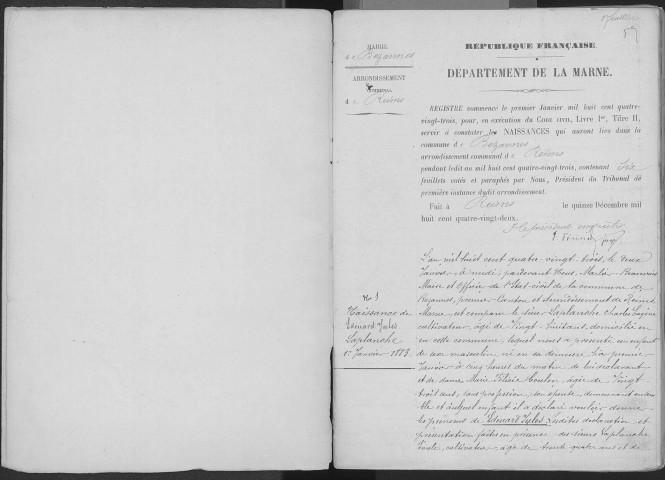 1er feuillet
57
MAIRIE
de Bezannes
ARRONDISSEMENT
COMMUNAL
de Reims
RÉPUBLIQUE FRANÇAISE.
DÉPARTEMENT DE LA MARNE.
REGISTRE commencé le premier Janvier mil huit cent quatre-
vingt-trois, pour, en exécution du CODE CIVIL, Livre Ier, Titre II,
servir à constater les NAISSANCES qui auront lieu dans la
commune de Bezannes
arrondissement communal de Reims
pendant ledit an mil huit cent quatre-vingt-trois, contenant six
feuillets cotés et paraphés par Nous, Président du Tribunal de
première instance dudit arrondissement.
Fait à Reims le quinze Décembre mil
huit cent quatre-vingt-deux.
Le président empêché
juge
No 1
Naissance de
Edouard Jules
Laplanche
1er Janvier 1883
L'an mil huit cent quatre-vingt-trois, le deux
Janvier, à midi, pardevant Nous, Beauvais
Maire et Officier de l'Etat-civil de la commune de
Bezannes, premier Canton et Arrondissement de Reims
Marne, est comparu le sieur Laplanche Charles Eugène
cultivateur, âgé de Vingt-huit ans, domicilié en
en cette commune, lequel nous a présenté un enfant
de sexe masculin, né en sa demeure le premier
Janvier à cinq heures du matin, de lui déclarant
et de dame Marie Félicie Coulon, âgée de Vingt
trois ans, sans profession, son épouse, demeurant ensem
ble et auquel enfant il a déclaré vouloir donner
les prénoms de Edouard Jules. Lesdites déclaration et
présentation faites en présence des sieurs Laplanche
cultivateur, âgé de trente quatre ans et de